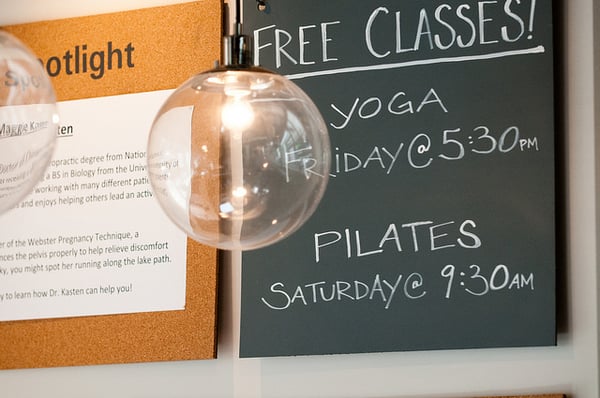 potlight
Maggie Kasten
Doctor of
ropractic degree from Nation
a BS in Biology from the University of
working with many different patie
s and enjoys helping others lead an activ
er of the Webster Pregnancy Technique, a
ances the pelvis properly to help relieve discomfort
ky, you might spot her running along the lake path.
y to learn how Dr. Kasten can help you!
FREE CLASSES!
YOGA
FRIDAY@5:30PM
PILATES
SATURDAY@ 9:30AM